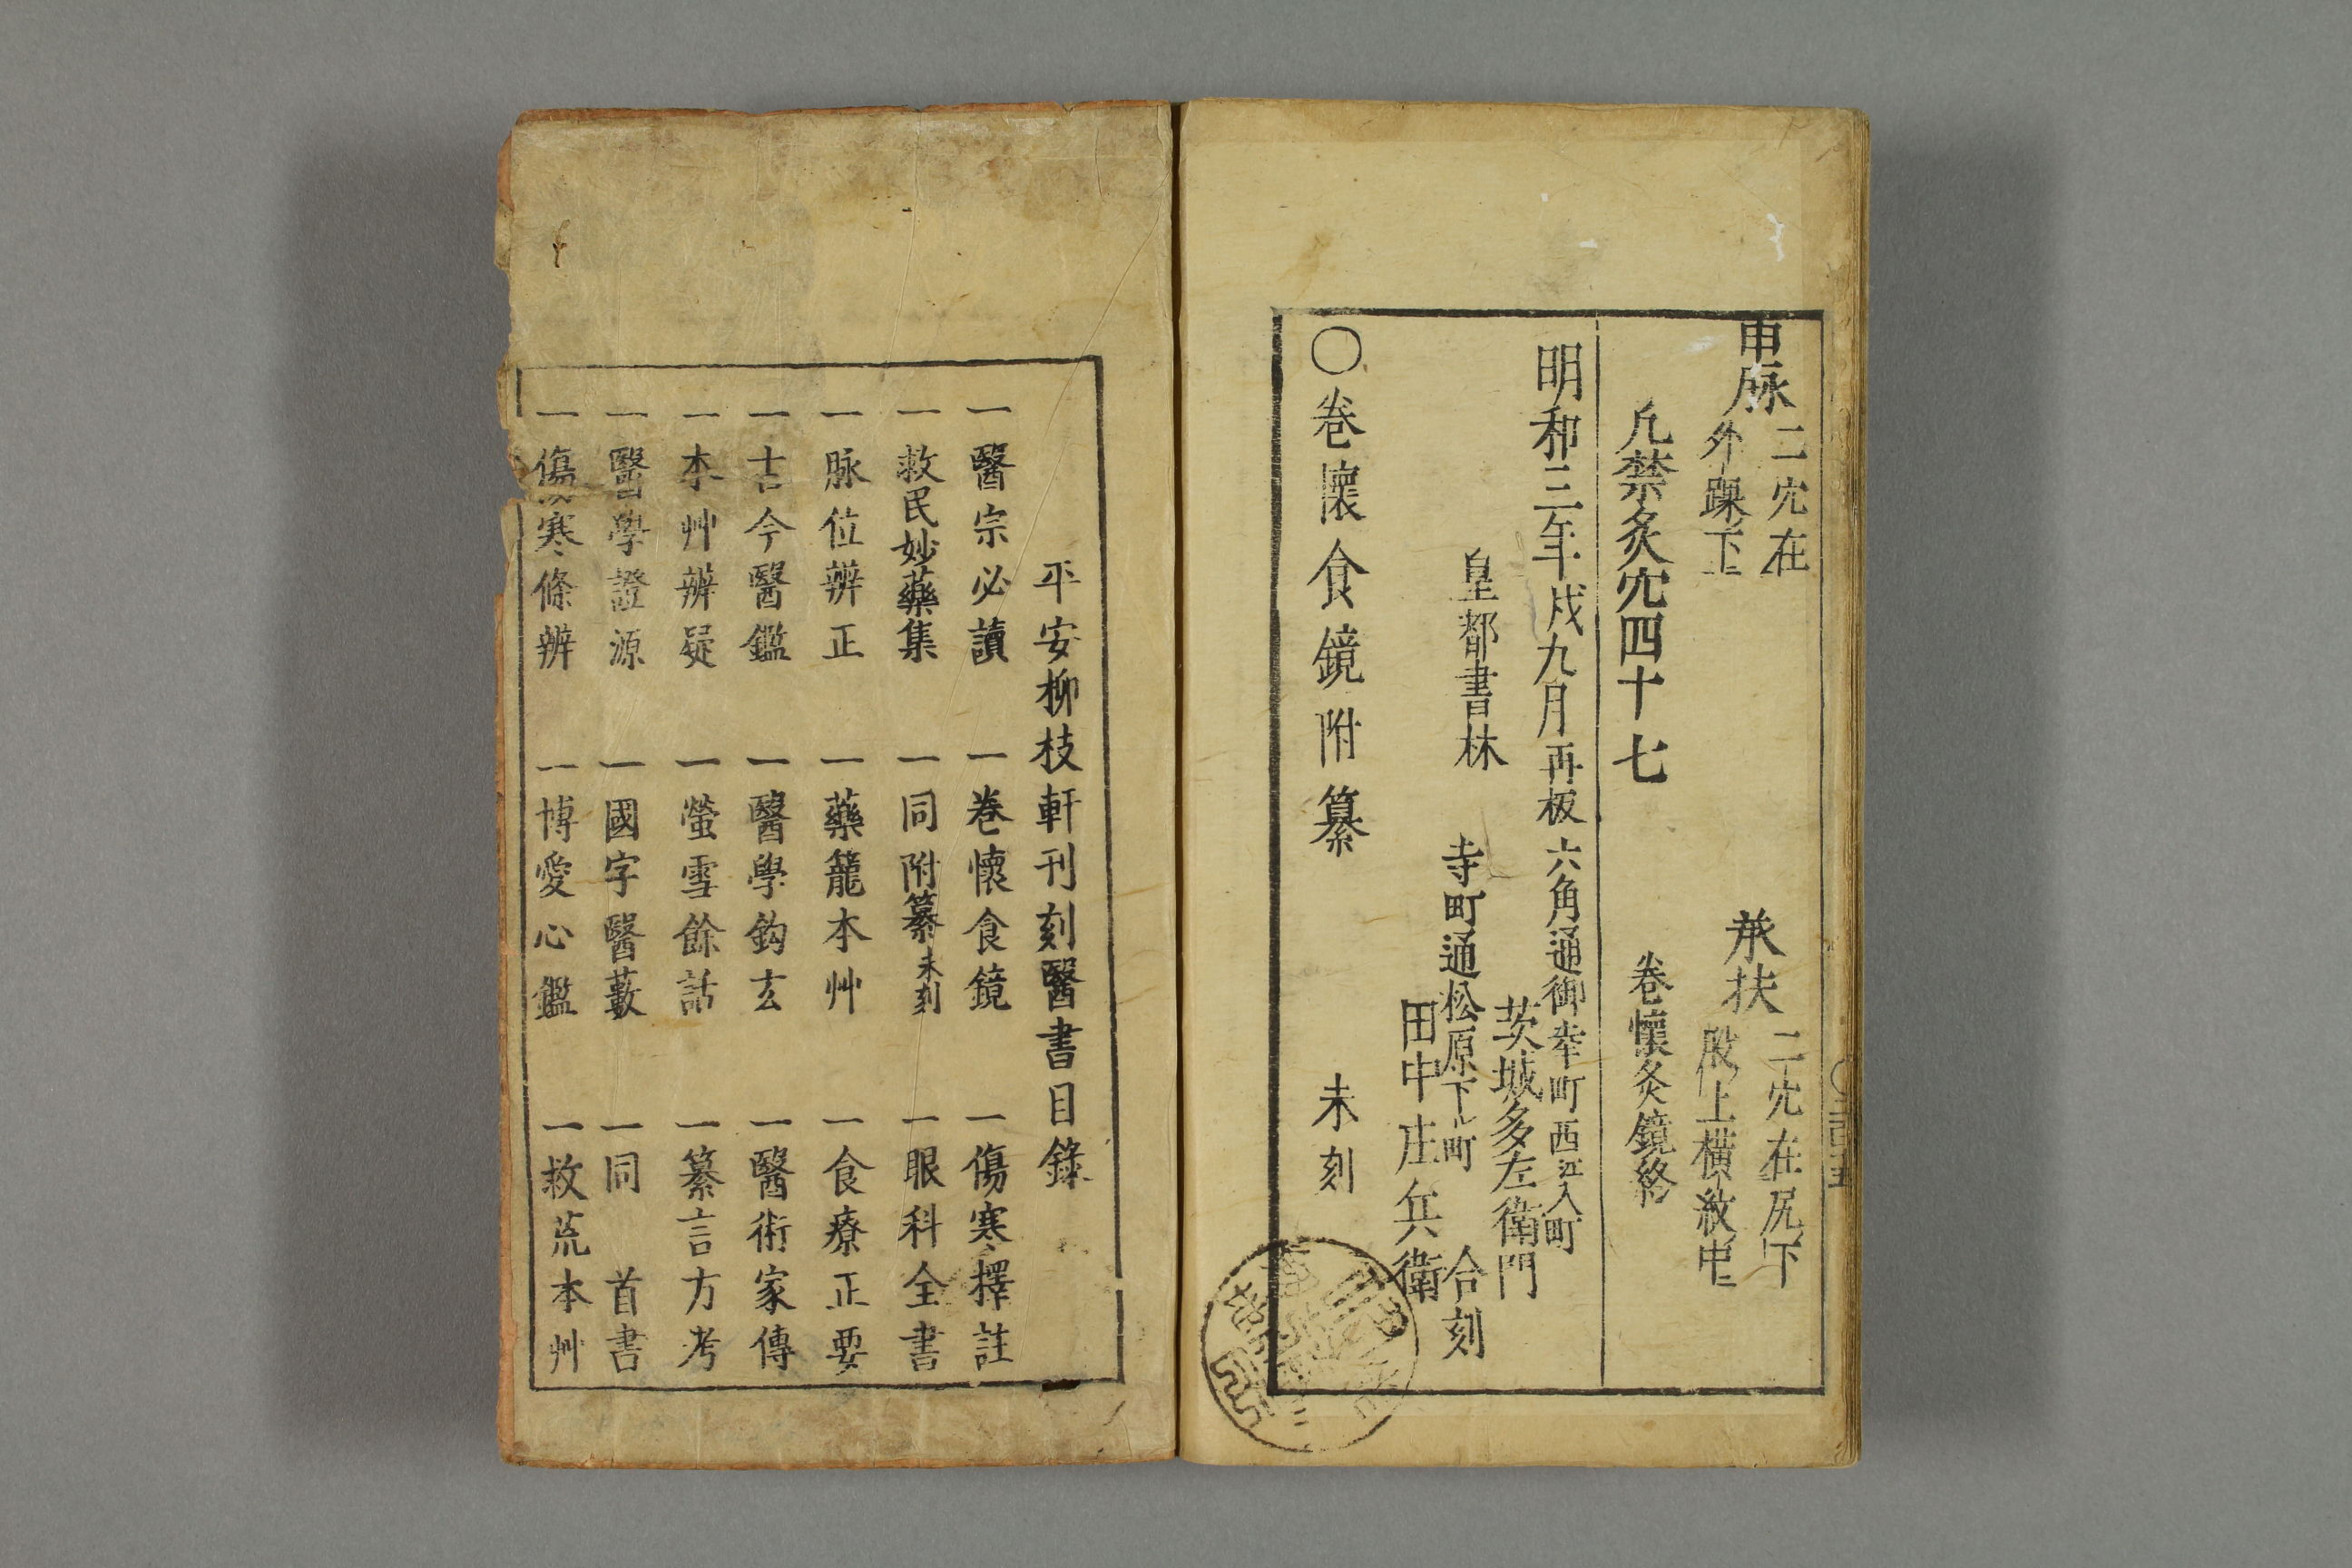 申脉 二穴在
外踝下
承扶 二穴在尻下
股上横紋中
凡禁灸穴四十七
巻懐灸鏡終
明和三年戌九月再板
六角通御幸町西江入町
茨城多左衛門
皇都書林
合刻
寺町通松原下ル町
田中庄兵衛
〇巻懷食鏡附纂 未刻
平安柳枝軒刊刻醫書目録
一醫宗必讀 一巻懷食鏡 一傷寒擇註
一救民妙藥集 一同附纂未刻 一眼科全書
一脉位辨正 一藥籠本艸 一食療正要
一古今醫鑑 一醫學鈎玄 一醫術家傳
一本艸辨疑 一螢雪餘話 一纂言方考
一醫學證源 一國字醫藪 一同 首書
一傷寒條辨 一博愛心鑑 一救荒本艸